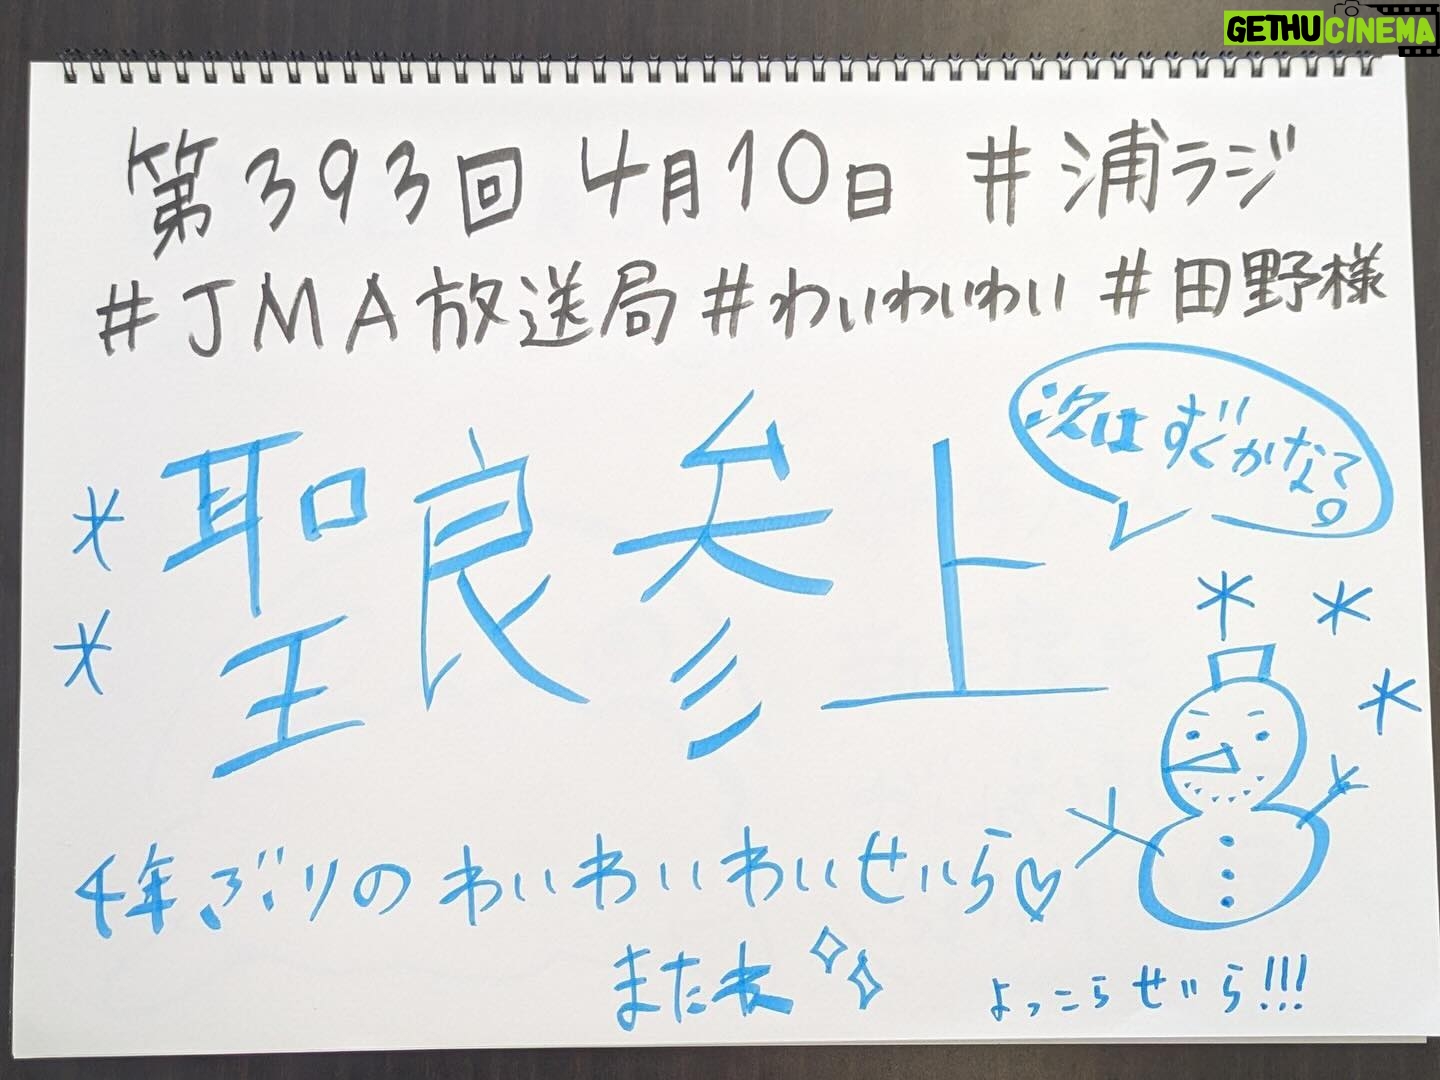 GETHUCINEMA
第393回 4月10日 #浦ラジ
#JMA放送局 #わいわいわい #田野様
次はすぐかなて。
聖良参上
4年ぶりのわいわいわいせいら♡
またね
よっこらせいら!!!